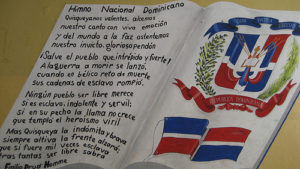 Himno Nacional Dominicano
Quisqueyanos valientes, alcemos
nuestro canto con viva emoción
y del mundo a la faz ostentemos
nuestro invicto, glorioso pendón
¡Salve el pueblo que intrépido y fuerte!
A la guerra a morir se lanzó,
cuando en bélico reto de muerte
sus cadenas de esclavo rompió.
Ningún pueblo ser libre merece
Si es esclavo, indolente y servil;
si en su pecho la llama no crece
que templó el heroismo viril
Mas Quisqueya la indomita y brava
siempre altiva la frente alzará;
que si fuere mil veces esclava
tras tantas ser libre sabrá
Emilio Prud Homme
REPUBLICA DOMINICANA